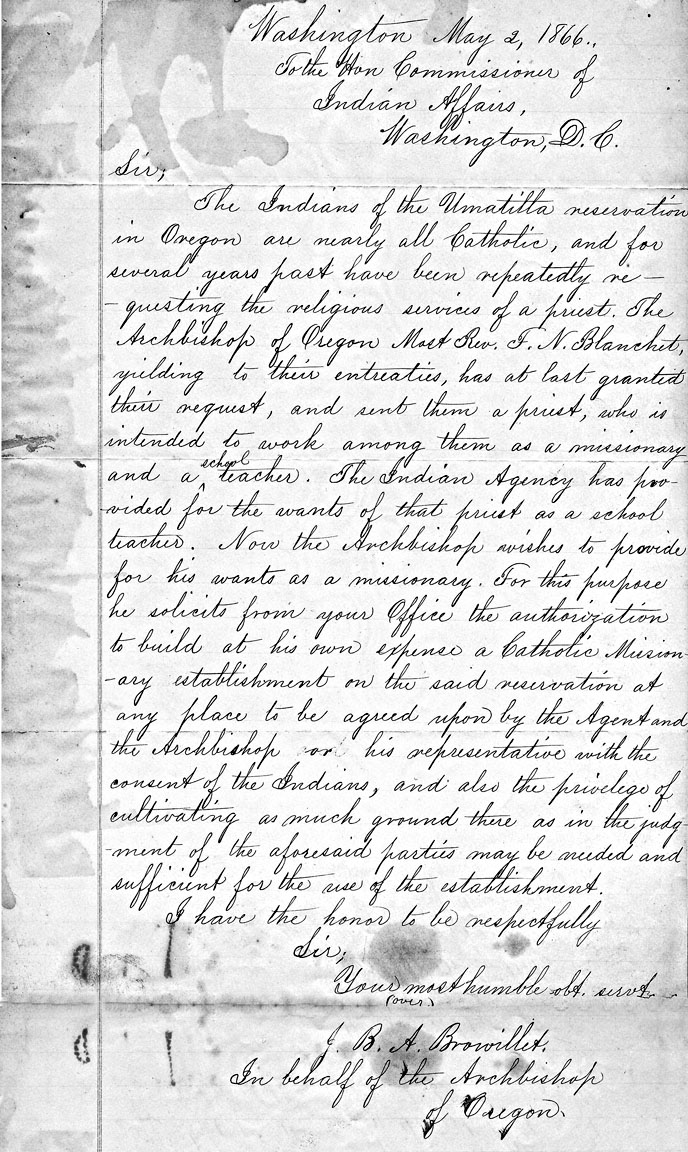 Washington May 2, 1866.,
To the Hon Commissioner of
Indian Affairs,
Washington, D. C.
Sir;
The Indians of the Umatilla reservation
in Oregon are nearly all Catholic, and for
several years past have been repeatedly re-
-questing the religious services of a priest. The
Archbishop of Oregon Most Rev. F. N. Blanchet,
yielding to their entreaties, has at last granted
their request, and sent them a priest, who is
intended to work among them as a missionary
and a school teacher. The Indian Agency has pro-
vided for the wants of that priest as a school
teacher. Now the Archbishop wishes to provide
for his wants as a missionary. For this purpose
he solicits from your Office the authorization
to build at his own expense a Catholic Mission-
-ary establishment on the said reservation at
any place to be agreed upon by the Agent and
the Archbishop or his representative with the
consent of the Indians, and also the privilege of
cultivating as much ground there as in the judg-
-ment of the aforesaid parties may be needed and
sufficient for the use of the establishment.
I have the honor to be respectfully
Sir;
Your most humble obt. servt
(over)
J. B. A. Browillet.
In behalf of the Archbishop
of Oregon.